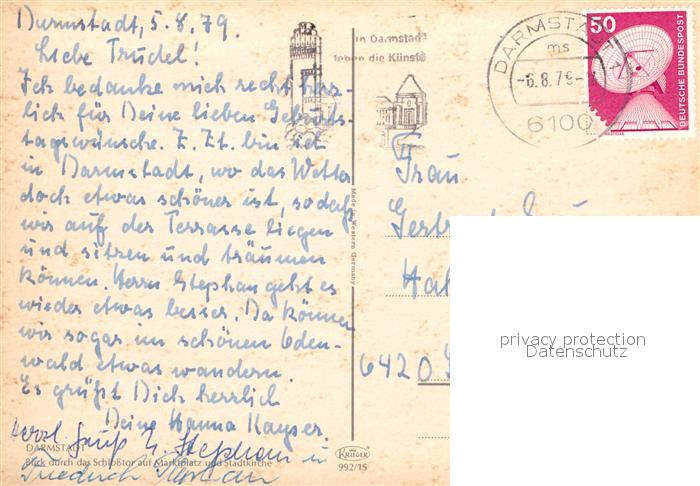 Darmstadt, 5.8.79.
Liebe Trudel!
Ich bedanke mich recht herz-
lich für Deine lieben Geburts-
tagswünsche. Z. Zt. bin ich
in Darmstadt, wo das Wetter
doch etwas schöner ist, so daß
wir auf der Terrasse liegen
und sitzen und träumen
können. Herrn Stephan geht es
wieder etwas besser. Da können
wir sogar im schönen Oden-
wald etwas wandern.
Es grüßt Dich herzlich
Deine Hanna Kayser.
Herzl. Gruß
Friedrich
DARMSTADT
Blick durch das Schloßtor auf Marktplatz und Stadtkirche
Made in Western Germany
KRÜGER
992/15
in Darmstadt
leben die Künste
DARMSTADT 1
ms
-6.8.79-
6100
50
DEUTSCHE BUNDESPOST
Frau
6420
privacy protection
Datenschutz